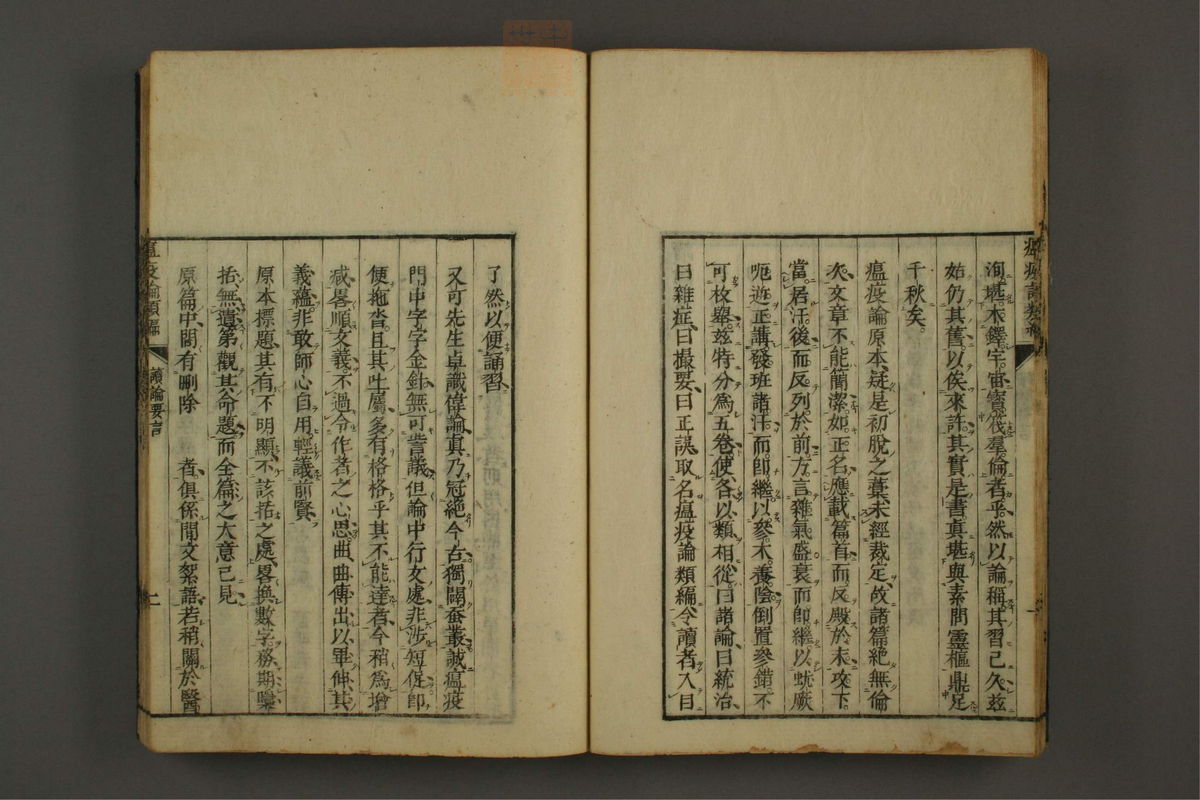 洵堪木鐸宇宙寶筏羣倫者乎然以論稱其習已久茲
始仍其舊以俟來許其實是書真堪與素問靈樞鼎足
千秋矣
瘟疫論原本疑是初脫之藁未經裁定故諸篇絕無倫
次文章不能簡潔如正名應載篇首而反殿於末攻下
當居汗後而反列於前方言雜氣盛衰而即繼以蚘厥
呃逆正講發班諸汗而即繼以參木養陰倒置參錯不
可枚舉茲特分為五卷使各以類相從曰諸論曰統治
曰雜症曰撮要曰正誤取名瘟疫論類編令讀者入目
了然以便誦習
又可先生卓識偉論真乃冠絕今古獨闢蚕叢誠瘟疫
門中字字金針無可訾議但論中行文處非涉短促即
便拖沓且其吐屬多有格格乎其不能達者今稍為增
減畧順文義不過令作者之心思曲曲傳出以畢伸其
義蘊非敢師心自用輕議前賢
原本標題其有不明顯不該括之處畧換數字務期櫽
括無遺第觀其命題而全篇之大意已見
原篇中間有刪除 者俱係閒文絮語若稍關於醫
瘟疫論類編
讀論要言
二